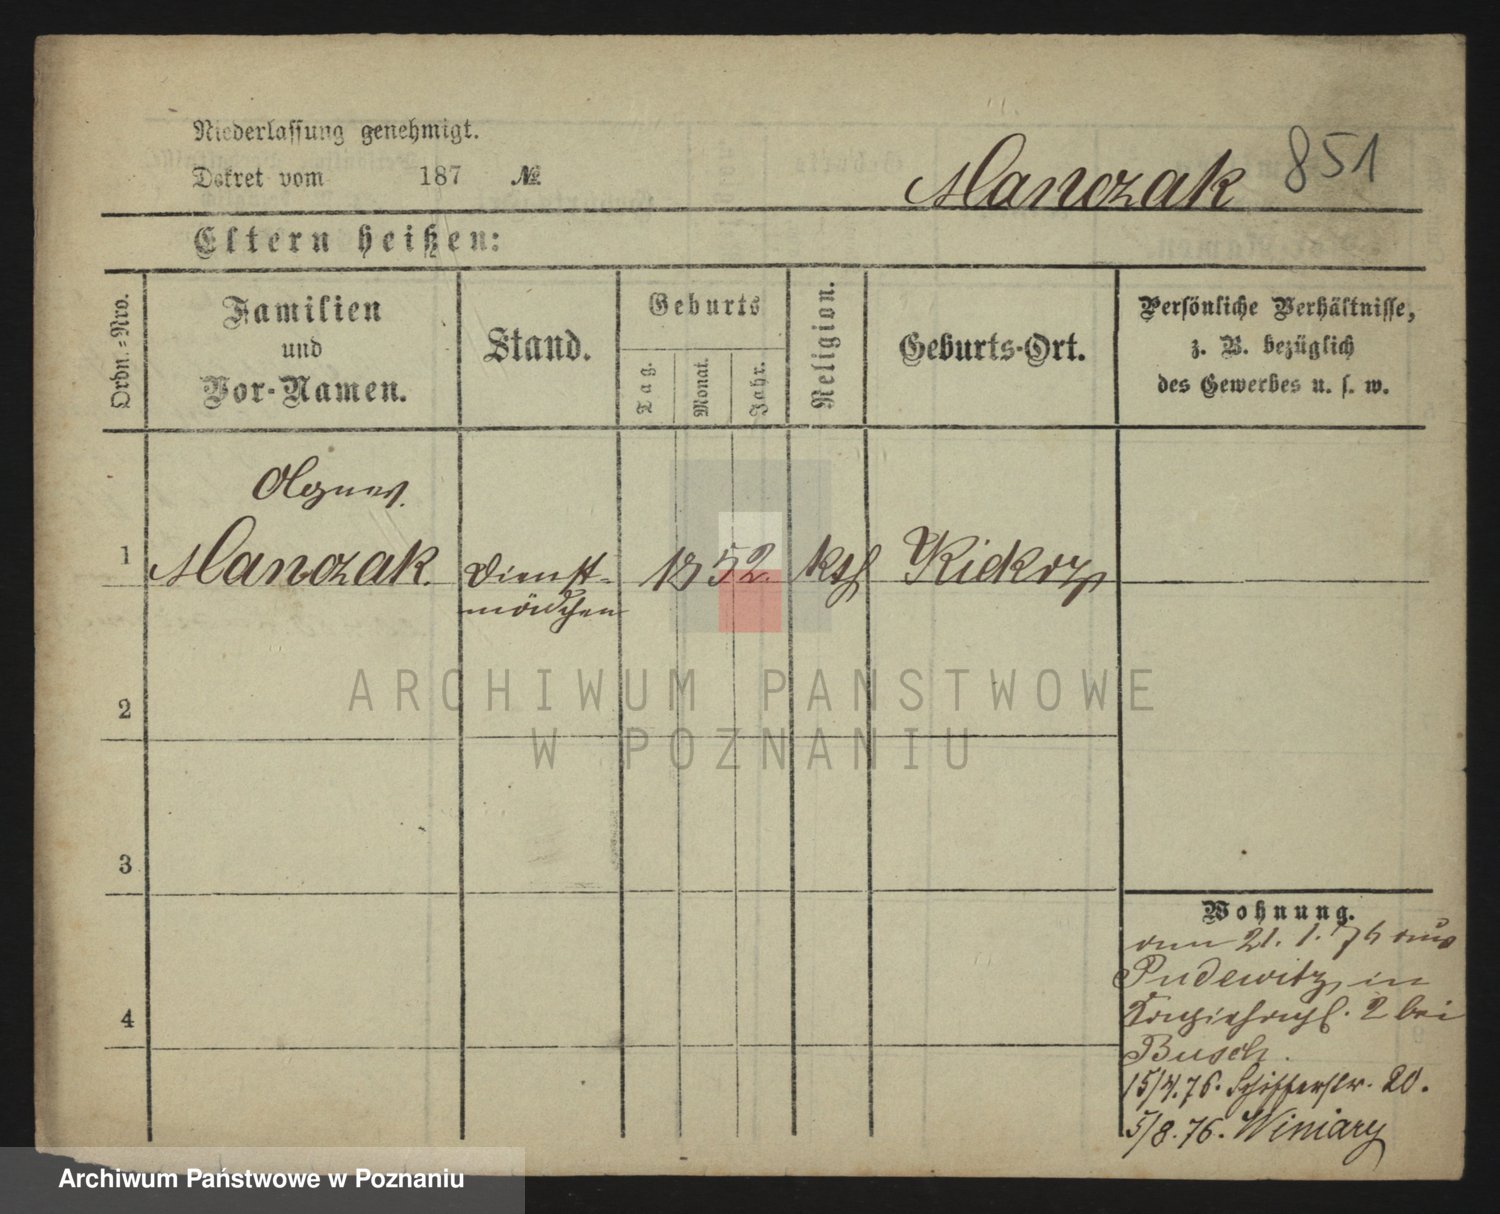 Niederlassung genehmigt.
Dekret vom 187 №
Manczak 851
Eltern heißen:
Ordn.-Nro.
Familien
und
Vor-Namen.
Stand.
Geburts
Tag.
Monat.
Jahr.
Religion.
Geburts-Ort.
Persönliche Verhältnisse,
z. B. bezüglich
des Gewerbes u. s. w.
Agnes.
1 Manczak. Dienst- 1852. kth Kiekrz
mädchen
2
ARCHIWUM PAŃSTWOWE
W POZNANIU
3
Wohnung.
am 21. 1. 76 aus
Pudewitz, in
2 bei
4
Busch.
15/4. 76. Schifferstr. 20.
5/8. 76. Winiary
Archiwum Państwowe w Poznaniu